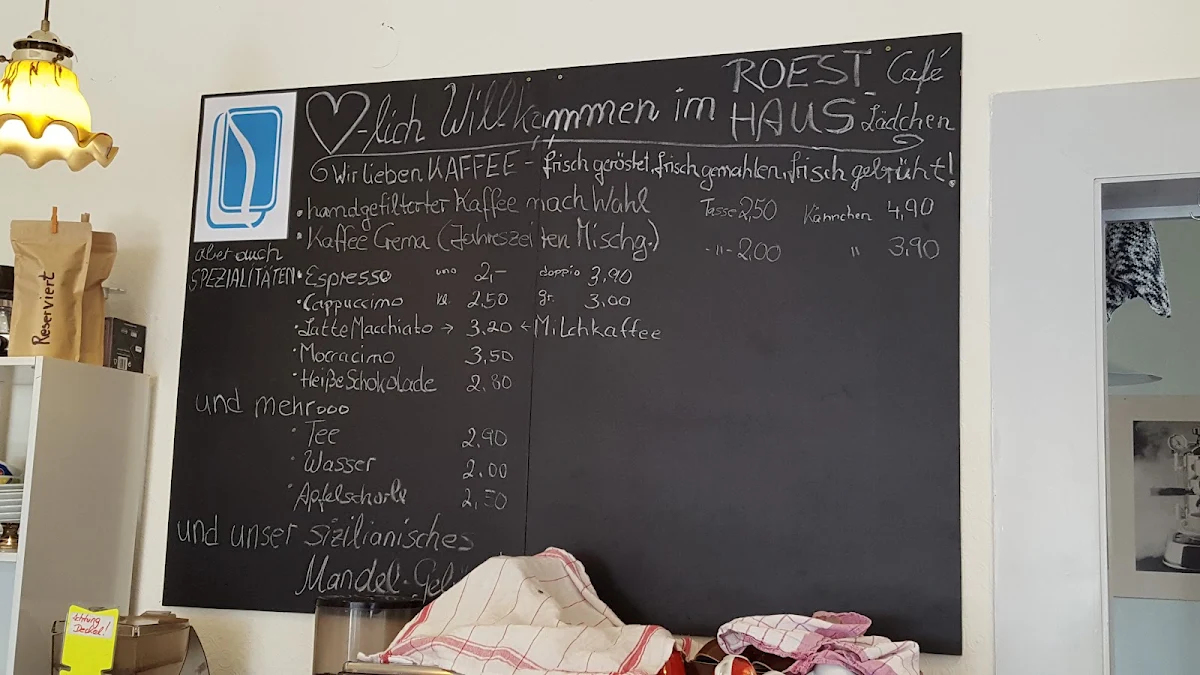 ♡-lich Willkommen im ROEST- Café
HAUS Lädchen
Wir lieben KAFFEE - frisch geröstet, frisch gemahlen, frisch gebrüht!
• handgefilterter Kaffee nach Wahl Tasse 2,50 Kännchen 4,90
• Kaffee Crema (Jahreszeiten Mischg.) -"- 2,00 " 3,90
aber auch
SPEZIALITÄTEN • Espresso uno 2,- doppio 3,90
• Cappuccino kl. 2,50 gr. 3,00
• Latte Macchiato → 3,20 ← Milchkaffee
• Moccacino 3,50
• Heiße Schokolade 2,80
und mehr...
• Tee 2,90
• Wasser 2,00
• Apfelschorle
und unser sizilianisches
Mandel-
Reserviert
Achtung
Deckel!